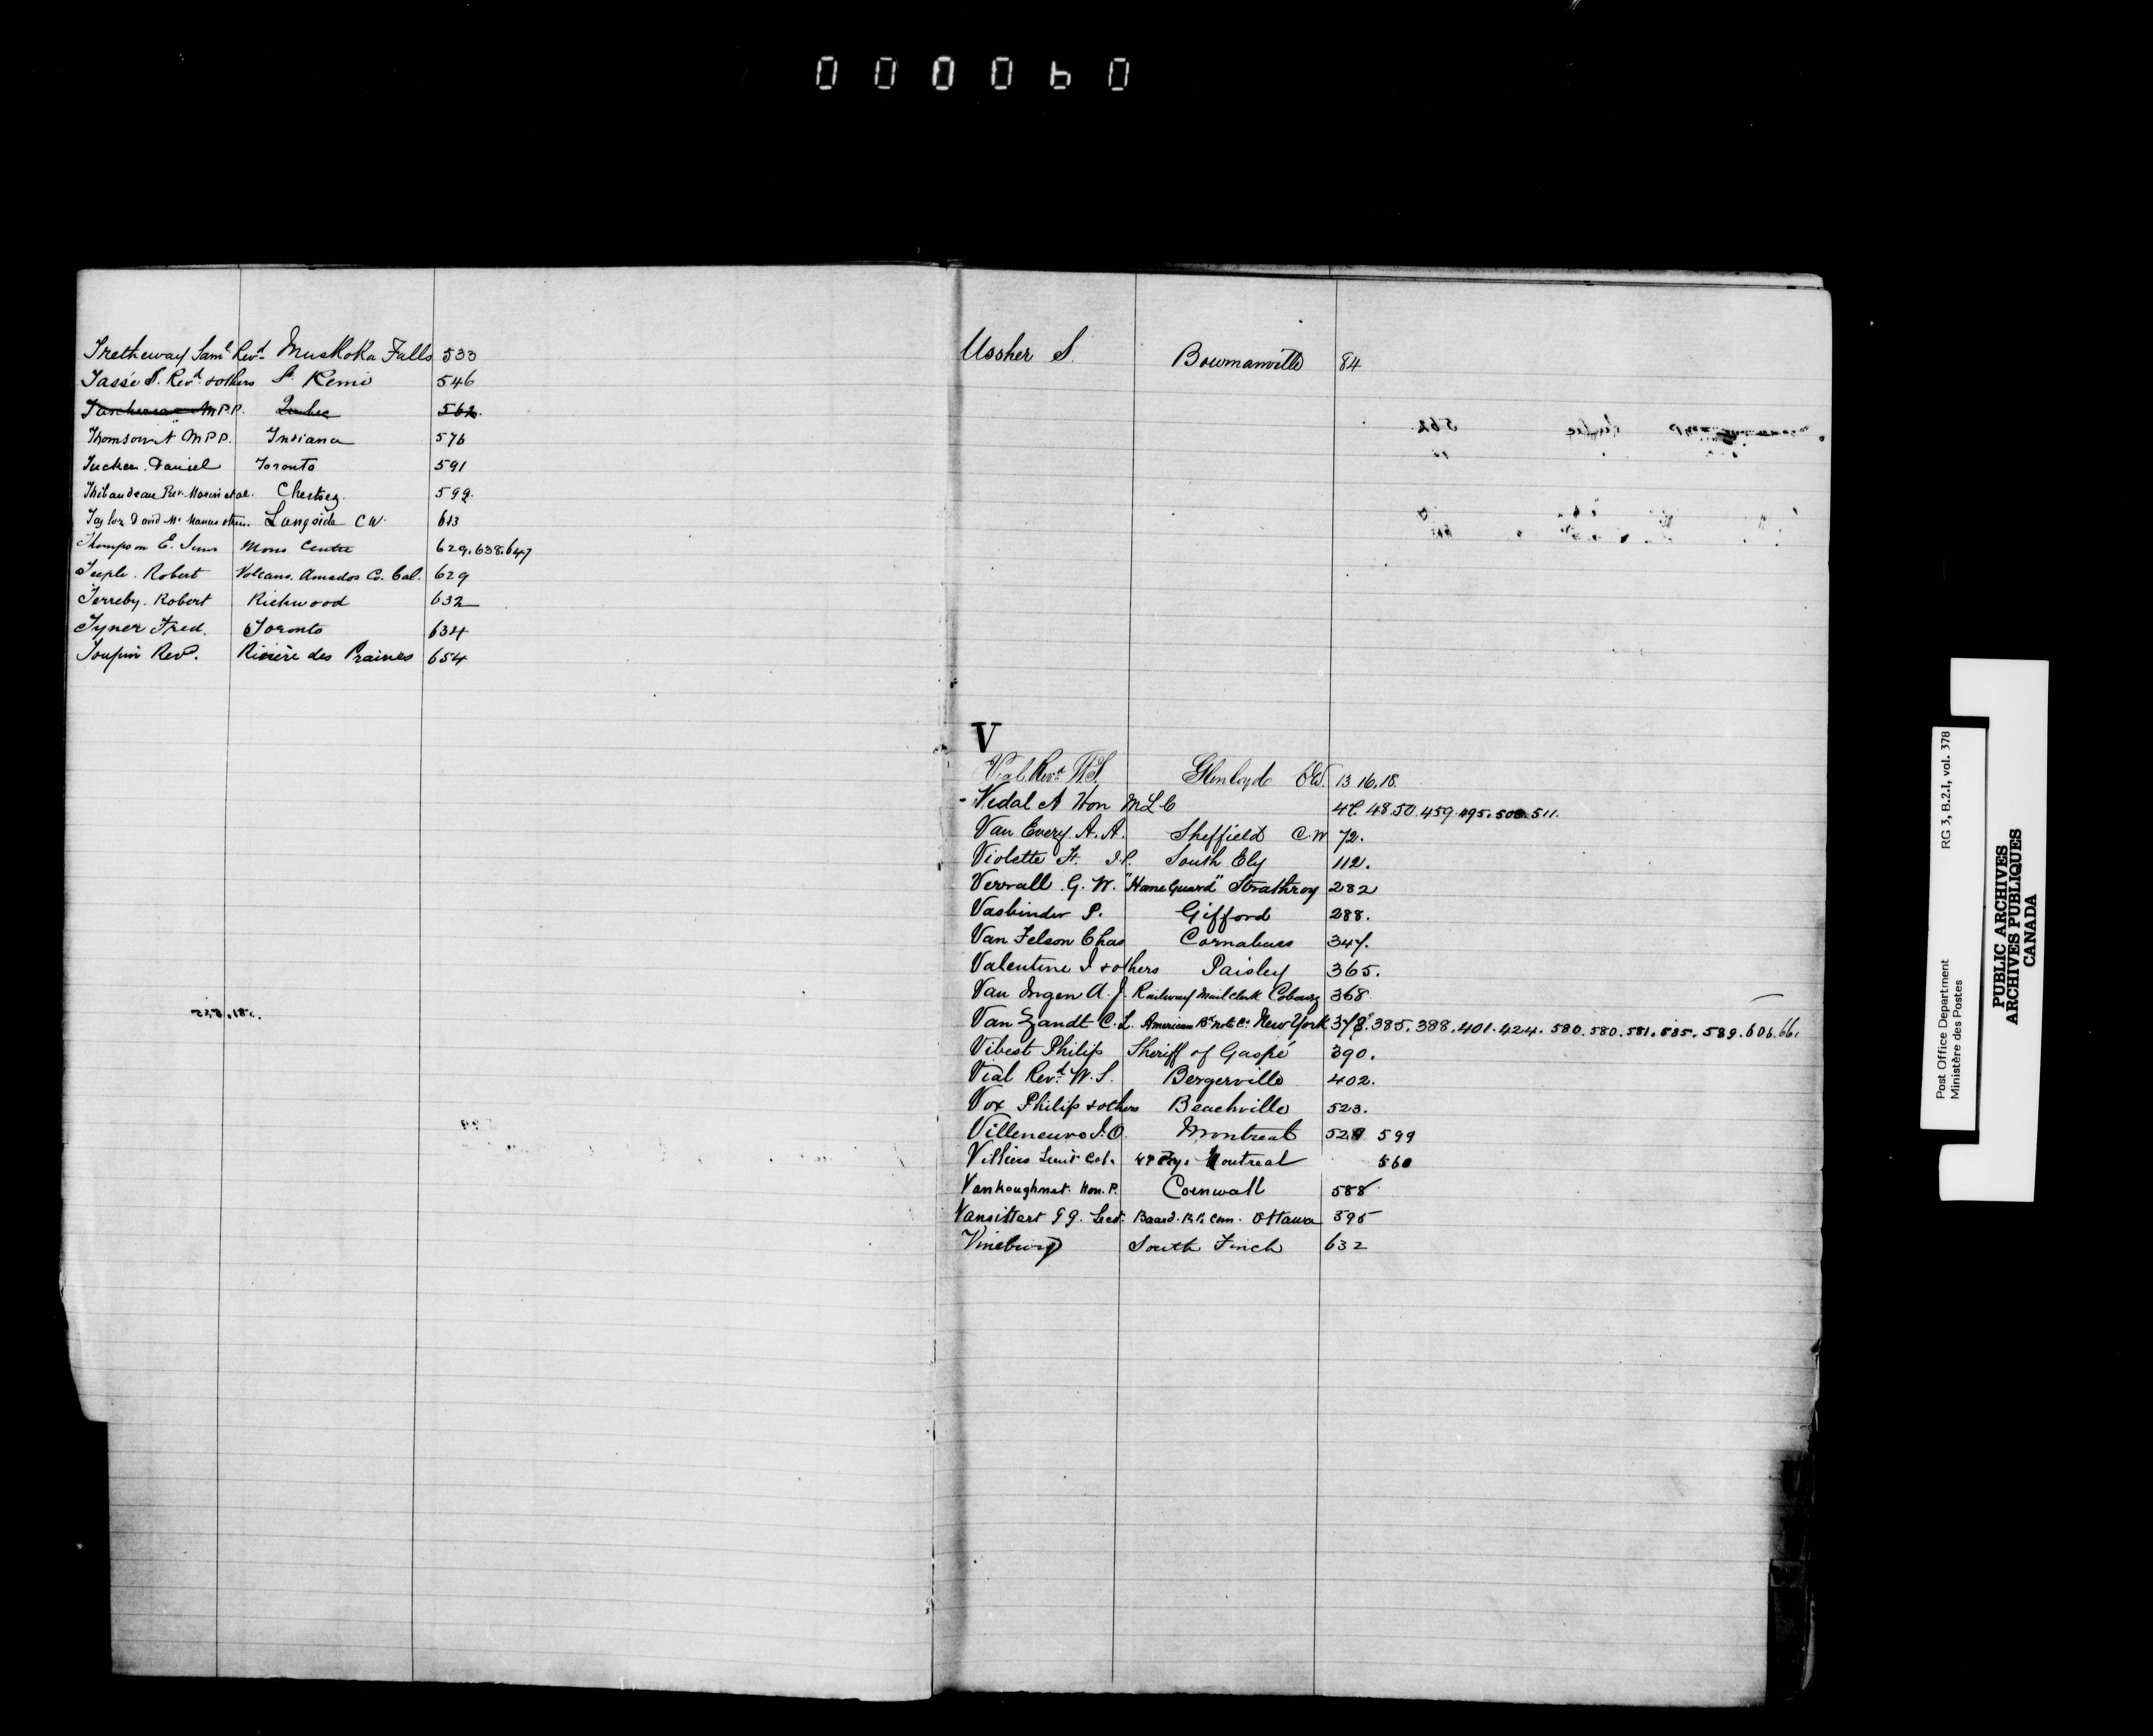 000060
Tretheway Saml Revd Muskoka Falls 533
Tassé S. Revd & others St. Remi 546
Taschereau M.P.P. Quebec 562.
Thomson A M.P.P. Indiana 576
Tucker. Daniel Toronto 591
Thibaudeau Rev. et al. Chertsey. 599.
Taylor David Langside C.W. 613
Thompson E. Mono Centre 629.638.647
Teeple. Robert Volcano. Amados Co. Cal. 629
Terreby. Robert Richwood 632
Tyner Fred. Toronto 634
Toupin Revd. Rivière des Prairies 654
Ussher S. Bowmanville 84
V
Vial Revd W.S. Glenloyde C.W. 13 16.18.
Vidal A Hon M L C 48.50.459.495.503.511.
Van Every A. A. Sheffield C.W. 72.
Violette F. J.P. South Ely 112.
Verrall G. W. "Home Guard" Strathroy 282
Vasbinder P. Gifford 288.
Van Felson Chas 347.
Valentine J & others Paisley 365.
Van Ingen A. J. Railway Mail Clerk Cobourg 368
Van Zandt C. L. American Bk note Co New York 378.385.388.401.424.580.580.581.585.589.606.661
Vibest Philip Sheriff of Gaspé 390.
Vial Revd W. S. Bergerville 402.
Vox Philip & others Beachville 523.
Villeneuve J. O. Montreal 599
Villiers Col. 47 Regt Montreal 560
Vankoughnet. Hon. P. Cornwall 588
Vansittart Secd. Board. Ottawa 595
Vineburg South Finch 632
Post Office Department RG 3, B.2.I, vol. 378
Ministère des Postes
PUBLIC ARCHIVES
ARCHIVES PUBLIQUES
CANADA